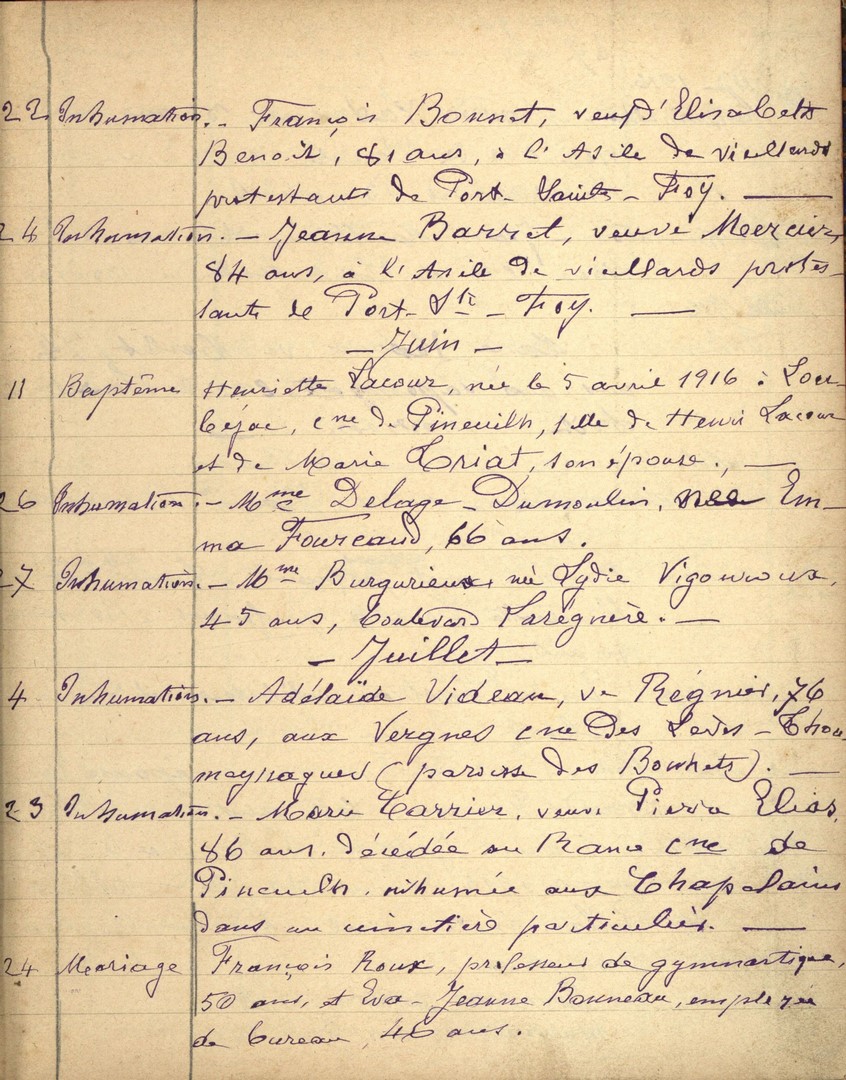 22 Inhumation. - François Bonnet, veuf d'Elisabeth
Benoît, 81 ans, à l'Asile de vieillards
protestants de Port-Sainte-Foy. —
24 Inhumation. - Jeanne Barret, veuve Mercier,
84 ans, à l'Asile de vieillards protes-
tants de Port-Ste-Foy. —
- Juin -
11 Baptême Henriette Lacour, née le 5 avril 1916 à Lou-
béjac, cne de Pineuilh, fille de Henri Lacour
et de Marie Triat, son épouse. —
26 Inhumation. - Mme Delage-Dumoulin, née Em-
ma Fourcaud, 66 ans.
27 Inhumation. - Mme Burgurieux, née Lydie Vigouroux,
45 ans, boulevard Larégnère. —
- Juillet -
4 Inhumation. - Adélaïde Videau, ve Régnier, 76
ans, aux Vergnes cne des Lèves-Thou-
meyragues (paroisse des Bouhets). —
23 Inhumation. - Marie Carrier, veuve Pierre Elias,
86 ans, décédée au cne de
Pineuilh, inhumée aux Chapelains
dans un cimetière particulier. —
24 Mariage François Roux, professeur de gymnastique,
50 ans, et Eva-Jeanne Bonneau, employée
de bureau, 46 ans.